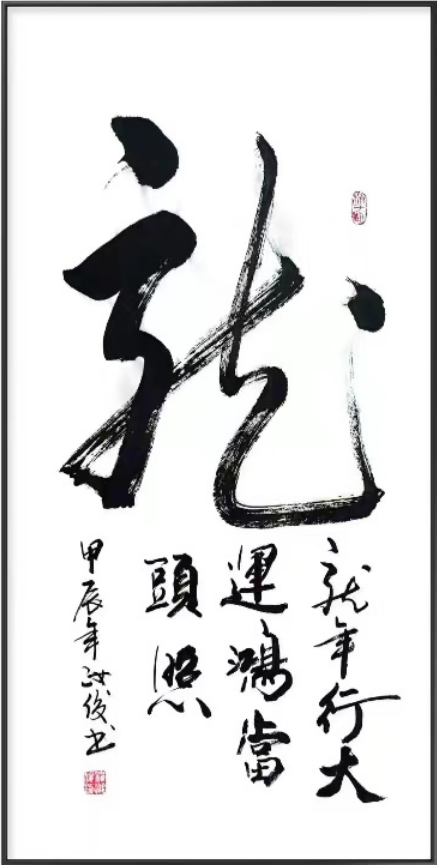 龍
龍年行大
運鴻當
頭照
甲辰年俊书